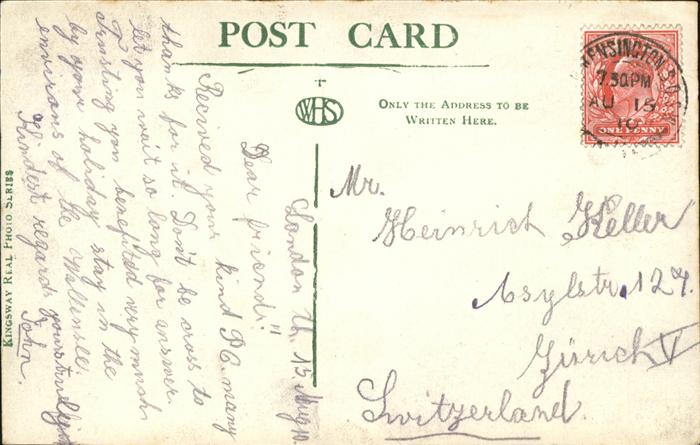 POST CARD
WHS
ONLY THE ADDRESS TO BE
WRITTEN HERE.
KENSINGTON S.O.
7.30 PM
AU 15
10
ONE PENNY
KINGSWAY REAL PHOTO SERIES
London th. 15 Aug 10
Dear friend!"
Received your kind P.C. many
thanks for it. Don't be cross to
let you wait so long for answer.
Trusting you benefited very much
by your holiday stay in the
environs of the Wallensee.
Kindest regards yours truly
John.
Mr.
Heinrich Keller
Asylstr. 127.
Zürich V
Switzerland.